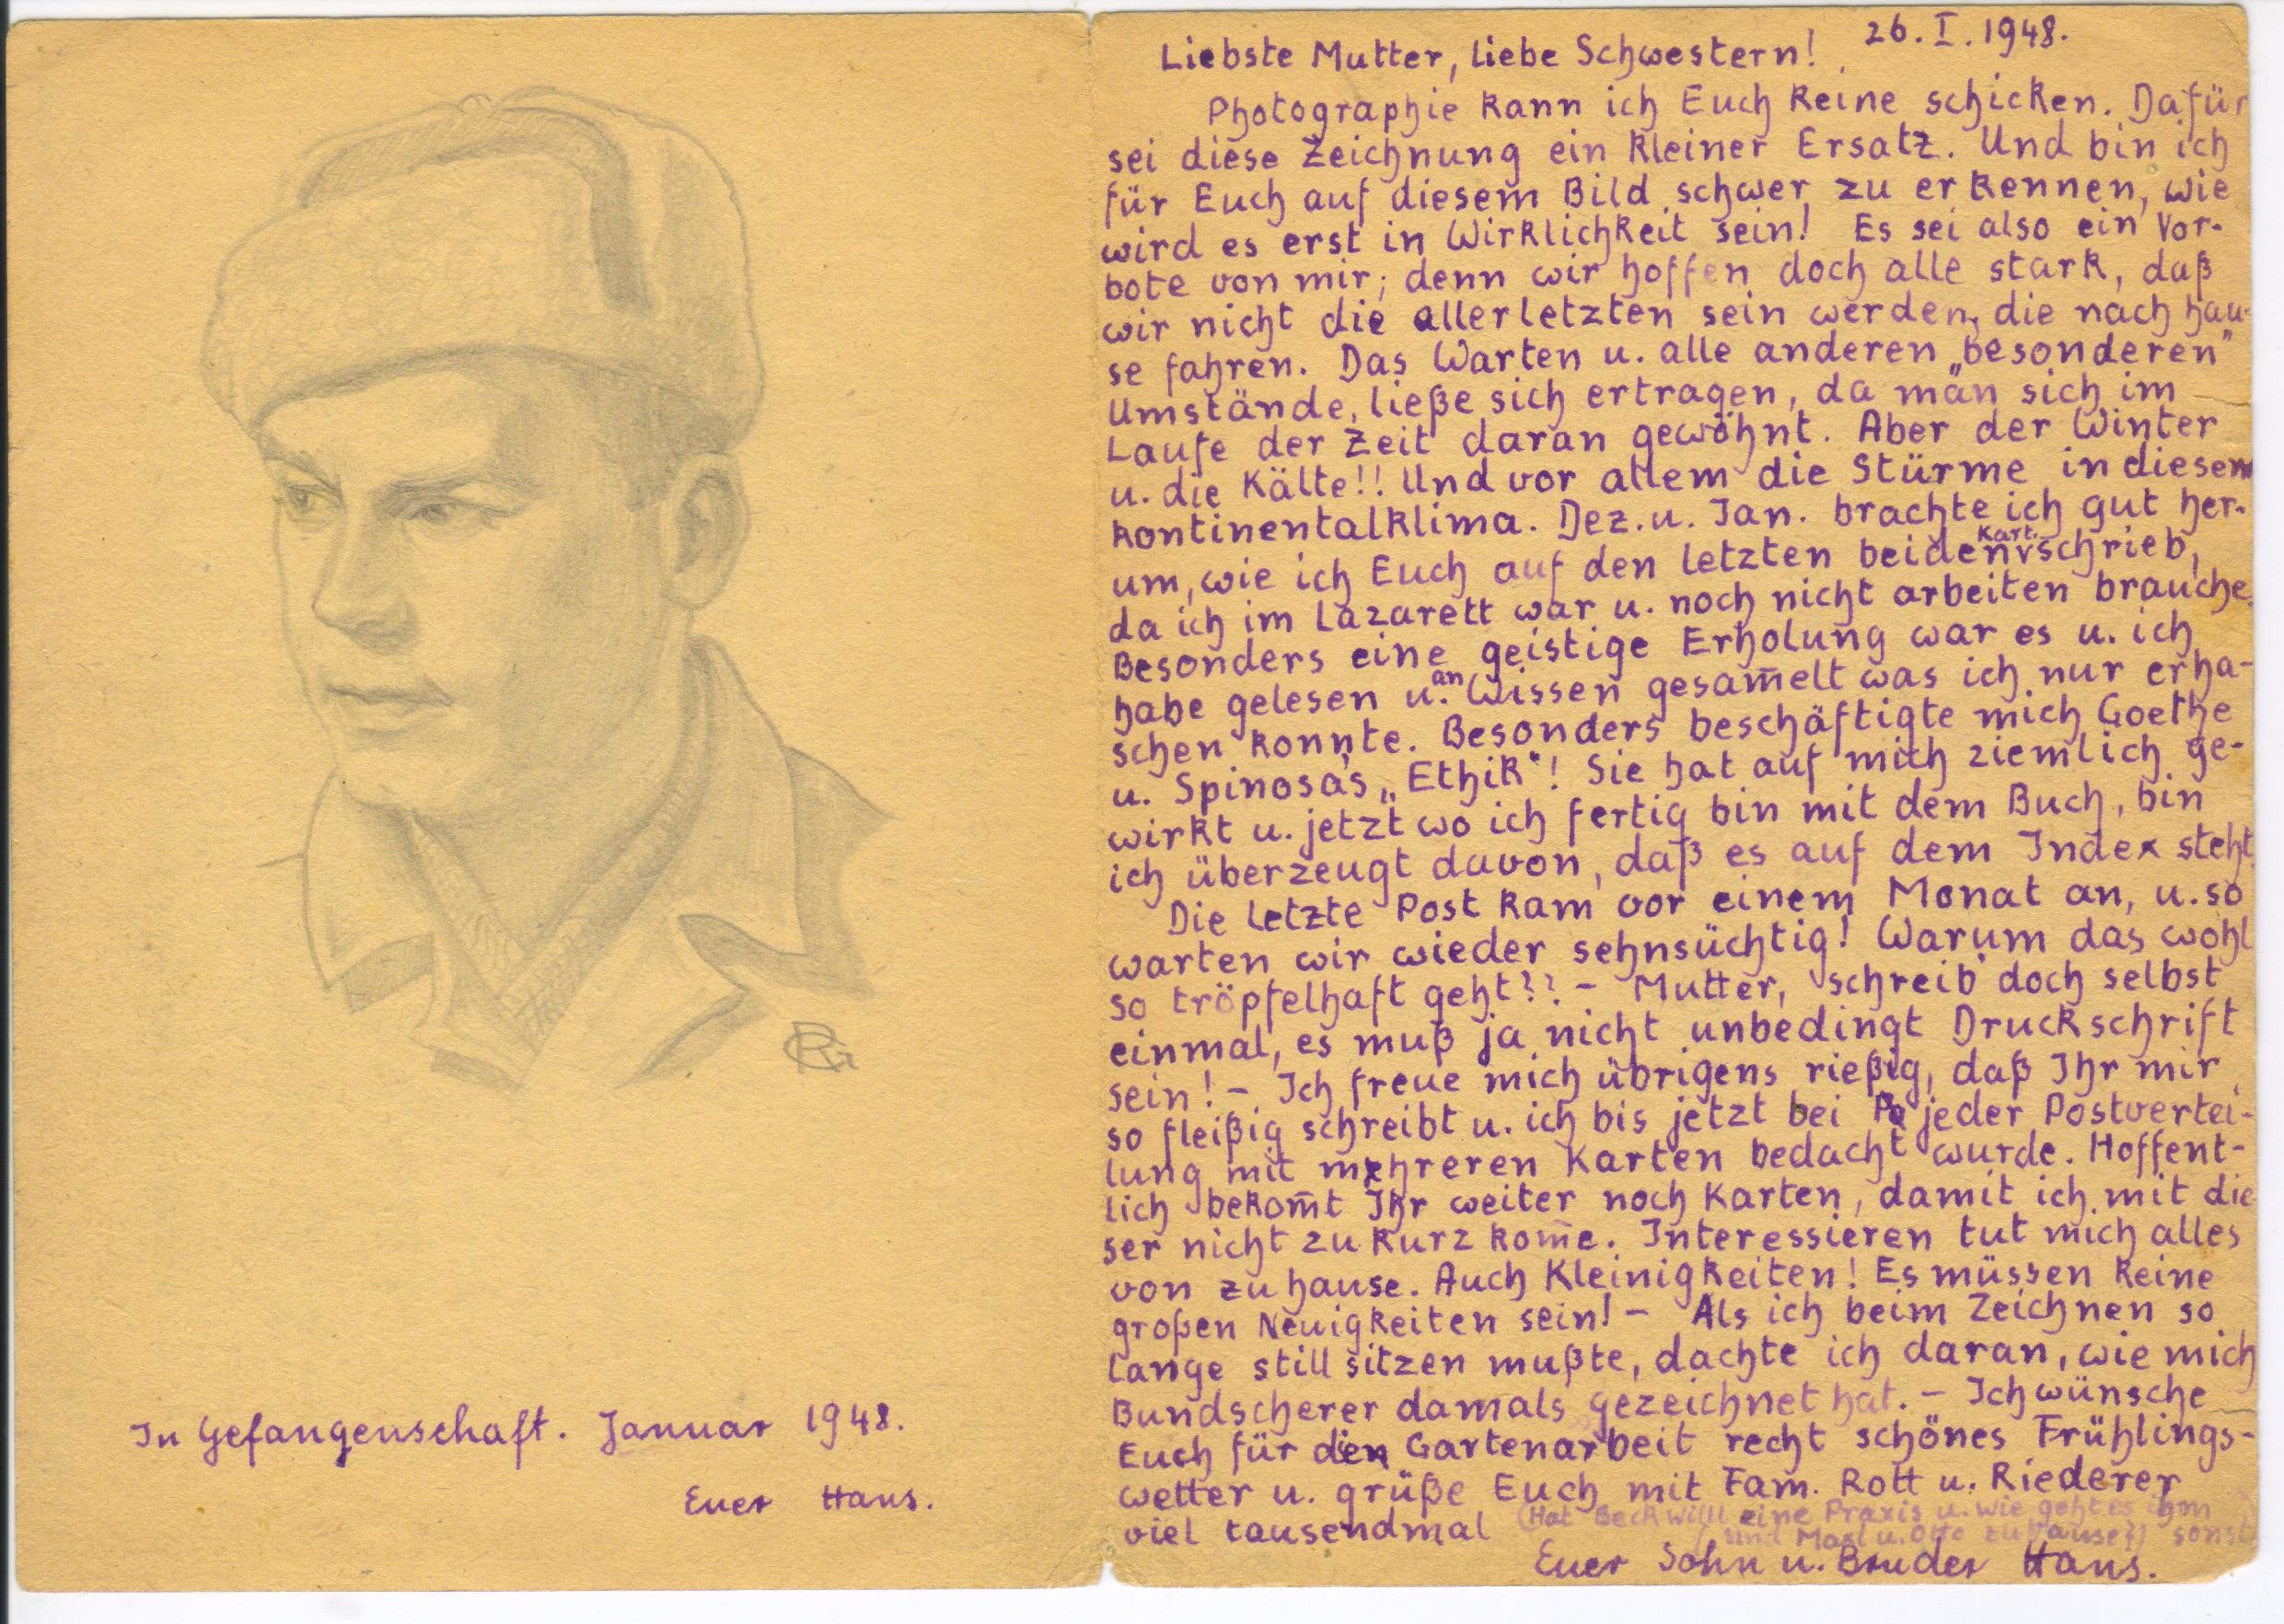 In Gefangenschaft. Januar 1948.
Euer Hans.
26. I. 1948.
Liebste Mutter, liebe Schwestern!
Photographie kann ich Euch keine schicken. Dafür
sei diese Zeichnung ein kleiner Ersatz. Und bin ich
für Euch auf diesem Bild schwer zu erkennen, wie
wird es erst in Wirklichkeit sein! Es sei also ein Vor-
bote von mir; denn wir hoffen doch alle stark, daß
wir nicht die allerletzten sein werden, die nach hau-
se fahren. Das Warten u. alle anderen „besonderen"
Umstände, ließe sich ertragen, da man sich im
Laufe der Zeit daran gewöhnt. Aber der Winter
u. die Kälte!! Und vor allem die Stürme in diesem
Kontinentalklima. Dez. u. Jan. brachte ich gut her-
um, wie ich Euch auf den letzten beiden Kart. schrieb,
da ich im Lazarett war u. noch nicht arbeiten brauche.
Besonders eine geistige Erholung war es u. ich
habe gelesen u. an Wissen gesam̅elt was ich nur erha-
schen konnte. Besonders beschäftigte mich Goethe
u. Spinosa's „Ethik"! Sie hat auf mich ziemlich ge-
wirkt u. jetzt wo ich fertig bin mit dem Buch, bin
ich überzeugt davon, daß es auf dem Index steht.
Die letzte Post kam vor einem Monat an, u. so
warten wir wieder sehnsüchtig! Warum das wohl
so tröpfelhaft geht?? - Mutter, schreib' doch selbst
einmal, es muß ja nicht unbedingt Druckschrift
sein! - Ich freue mich übrigens rießig, daß Ihr mir
so fleißig schreibt u. ich bis jetzt bei jeder Postvertei-
lung mit mehreren Karten bedacht wurde. Hoffent-
lich bekom̅t Ihr weiter noch Karten, damit ich mit die
ser nicht zu kurz kom̅e. Interessieren tut mich alles
von zuhause. Auch Kleinigkeiten! Es müssen keine
großen Neuigkeiten sein! - Als ich beim Zeichnen so
lange still sitzen mußte, dachte ich daran, wie mich
Bundscherer damals gezeichnet hat. - Ich wünsche
Euch für die Gartenarbeit recht schönes Frühlings-
wetter u. grüße Euch mit Fam. Rott u. Riederer
viel tausendmal (Hat Beck Willi eine Praxis u. wie geht es ihm
sonst (sind Maxl u. Otto zuhause?)
Euer Sohn u. Bruder Hans.